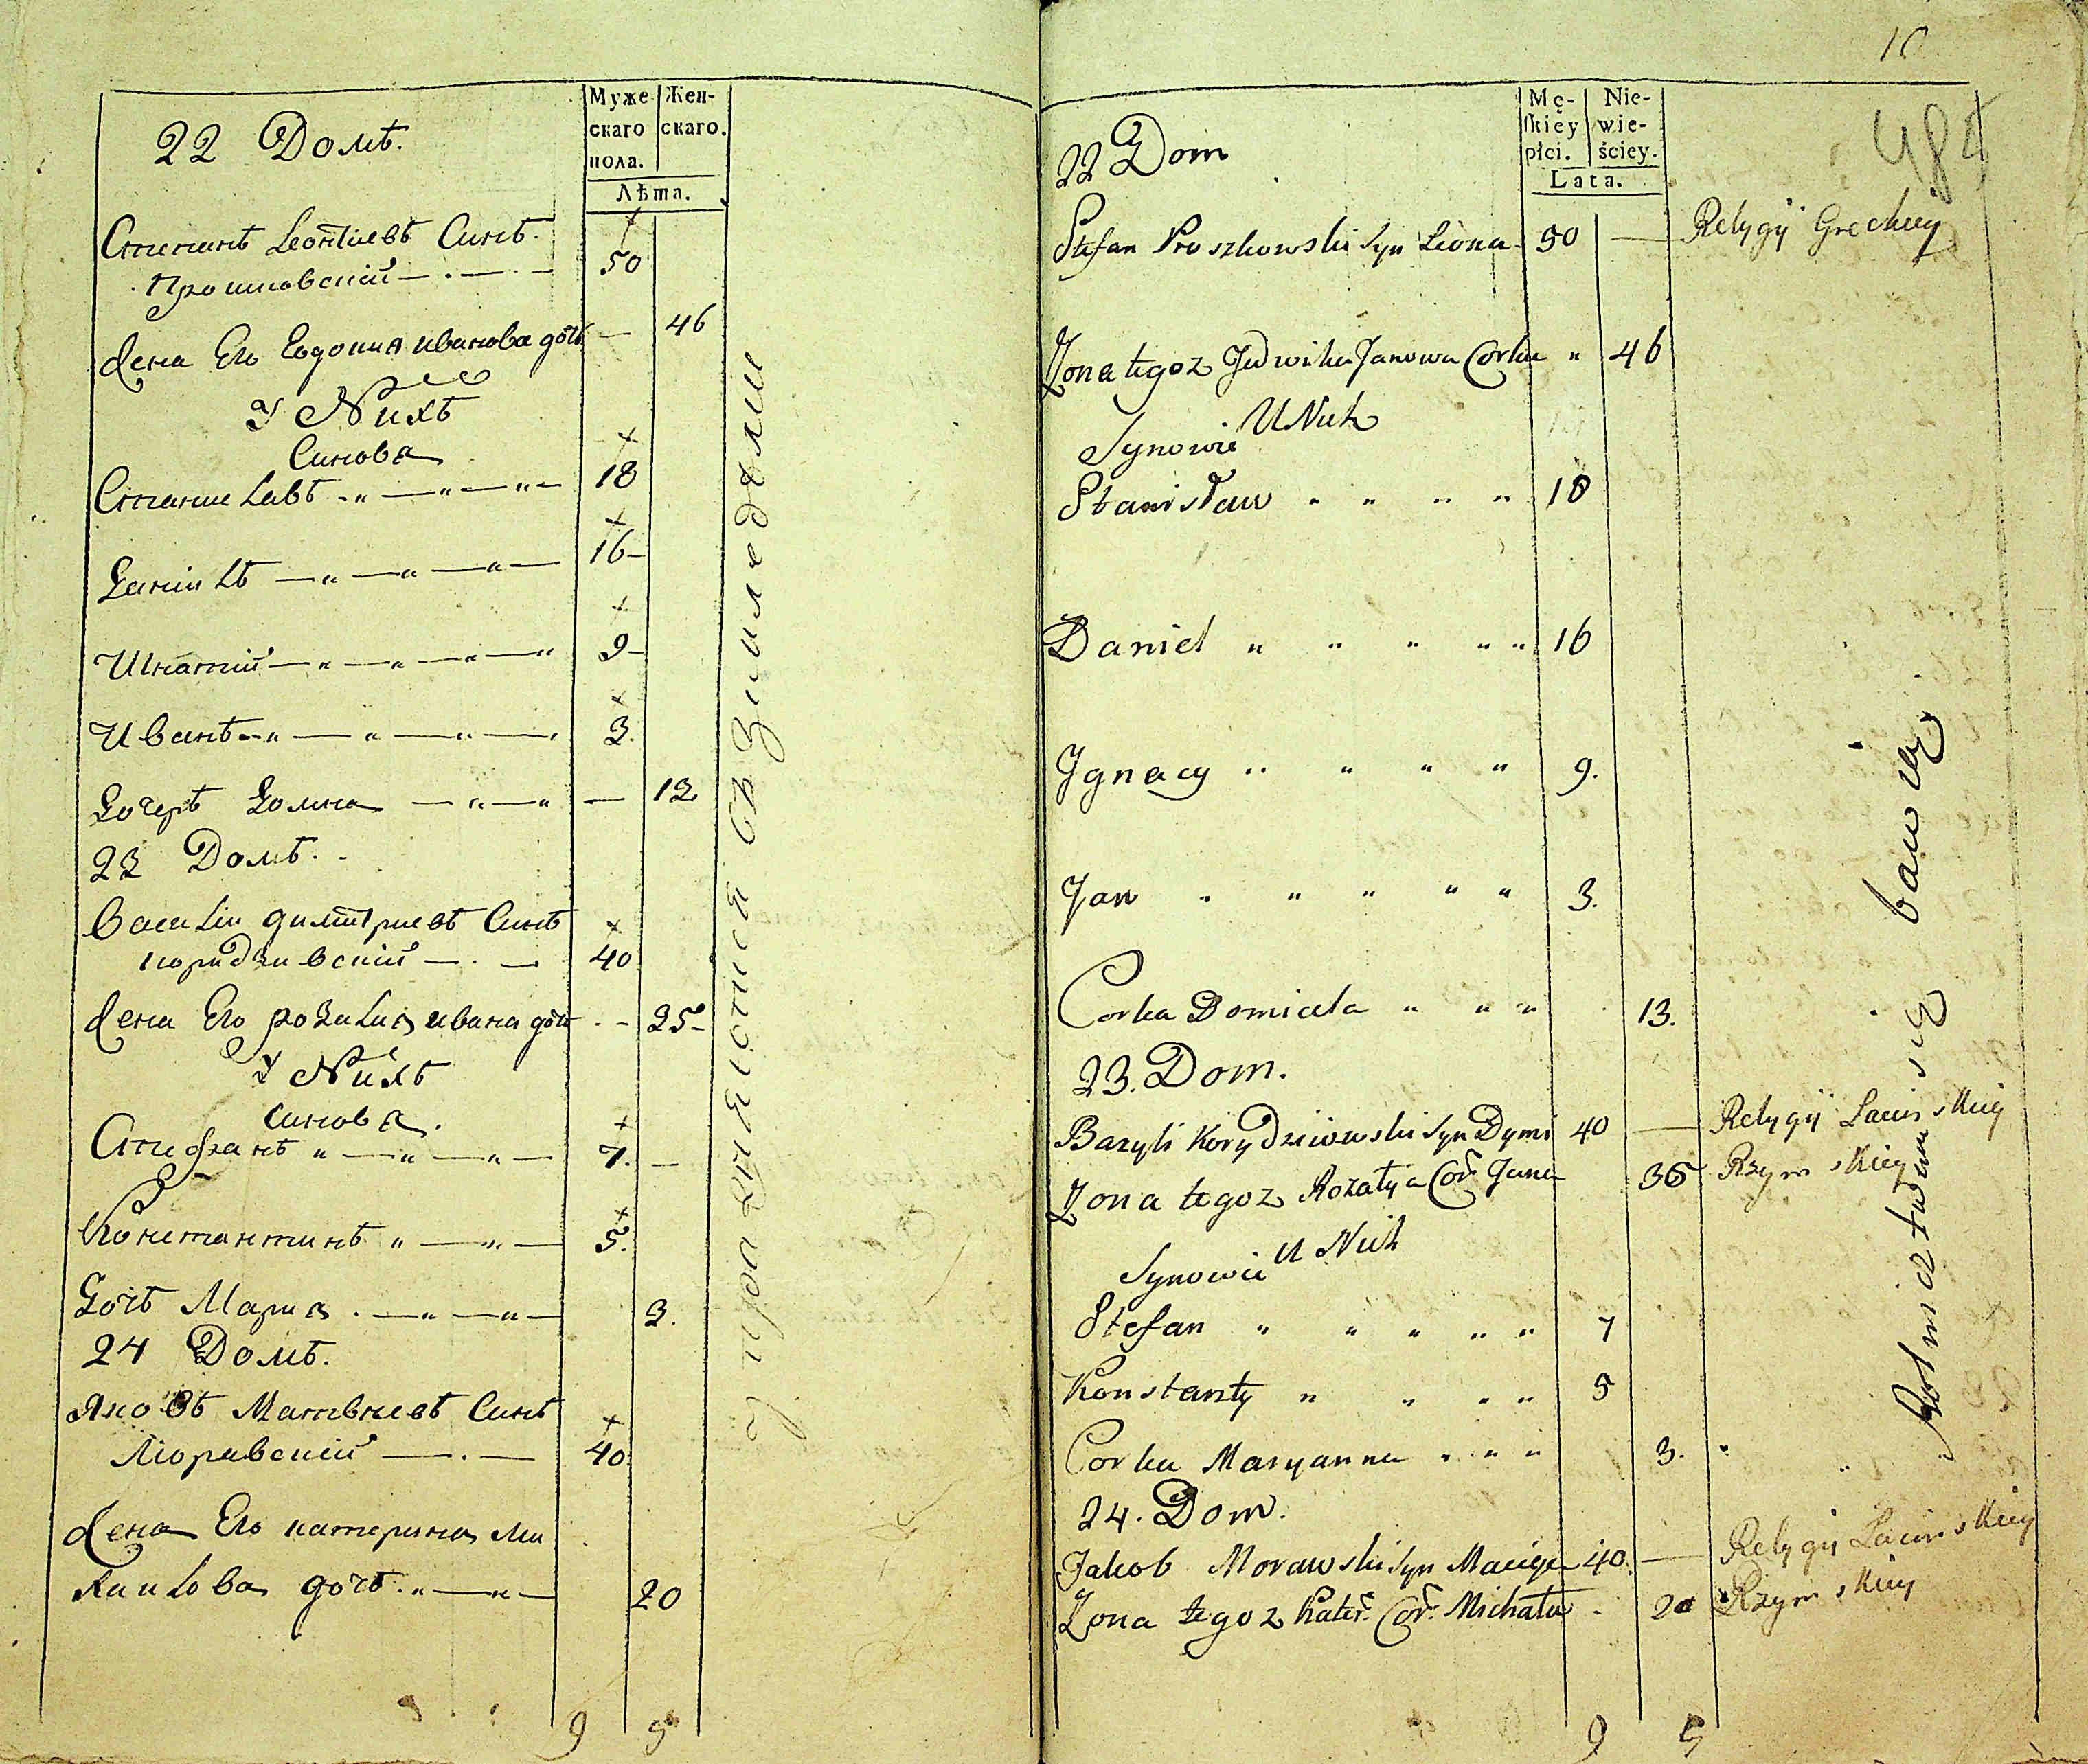 22 Домъ.
Муже
скаго
пола.
Жен-
скаго.
Лѣта.
Степанъ Леонтиевъ Синъ.
Прошковский 50
Жена Его Евдокия иванова дочь — 46
У Nихъ
Синова
Станиславъ 18
Данiилъ 16
Игнатий 9
Иванъ 3.
Дочеръ Домна — 13
23 Домъ.
Василiи димитриевъ Синъ
коридзивский 40
Жена Его розалия ивана дочь 25
У Nихъ
Синова.
Стефанъ 7. —
Константинъ 5.
Дочъ Мария 3.
24 Домъ.
Яковъ Матвиевъ Синъ
Моравский 40
Жена Его катерина Ми
хаилова дочъ. 20
9 5
упражняются въ Земледелии
10
484
22 Dom
Mę-
skiey
płci.
Nie-
wie-
ściey.
Lata.
Stefan Proszkowski Syn Leona 50 — Relygij Greckiey
Zona tegoz Jedwika Janowa Corka " 46
U Nich
Synowie
Stanisław " " " " 18
Daniel " " " " " 16
Jgnacy " " " " 9.
Jan " " " " " 3.
Corka Domicela " " " 13.
23. Dom.
Bazyli Korydziewski Syn Dymi 40 — Relygij Lacinskiey
Zona tegoz Rozalyia Cor. Jana 36 Rzymskiey
U Nich
Synowie
Stefan " " " " " 7
Konstanty " " " " 5
Corka Maryanna " " " 3.
24. Dom.
Jakob Morawski Syn Macieja 40. — Relygij Lacinskiey
Zona tegoz Kater. Cor. Michała 20 Rzymskiey
9 5
Rolnictwem się bawią